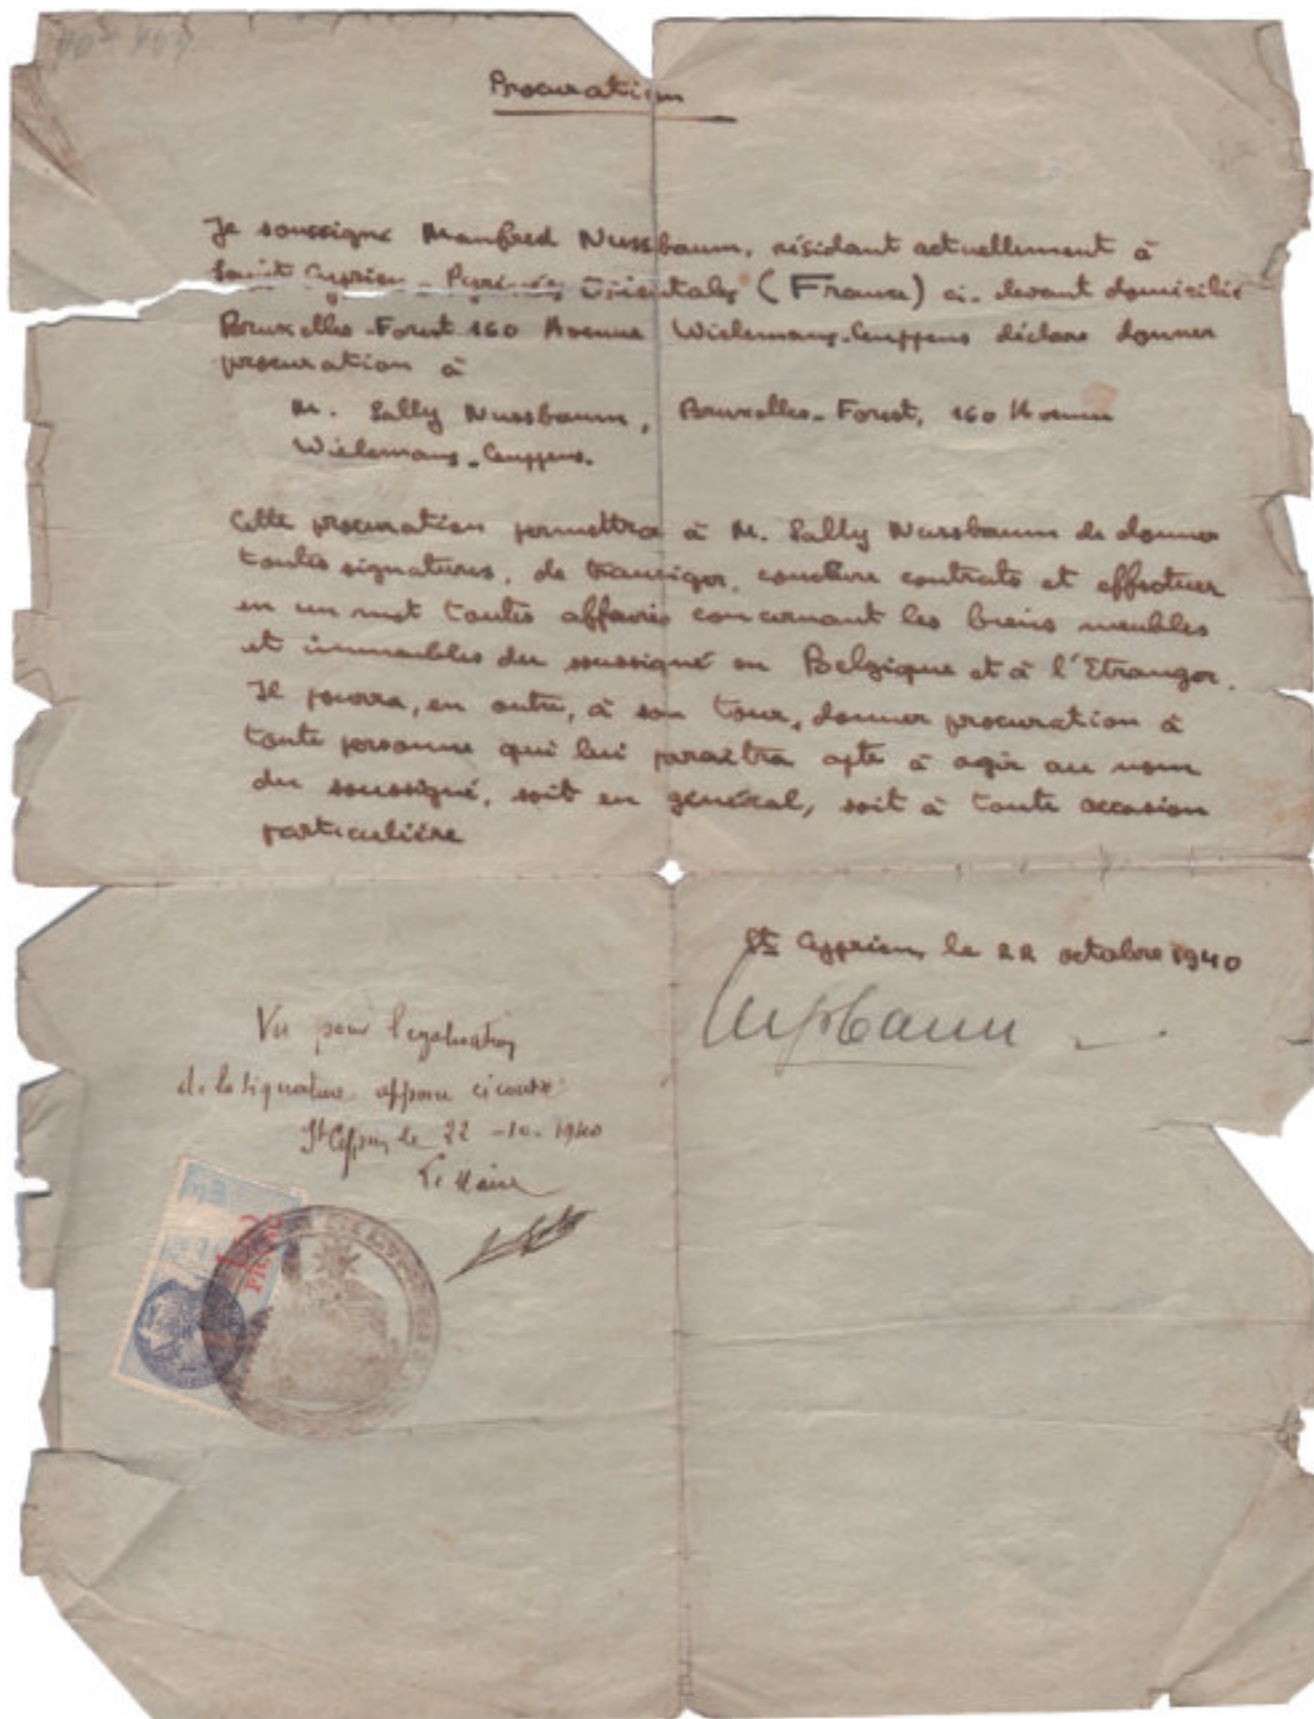 Procuration
Je soussigné Manfred Nussbaum, résidant actuellement à
Saint Cyprien - Pyrénées Orientales (France) ci-devant domicilié
Bruxelles-Forest 160 Avenue Wielemans-Ceuppens déclare donner
procuration à
M. Sally Nussbaum, Bruxelles-Forest, 160 Avenue
Wielemans-Ceuppens.
Cette procuration permettra à M. Sally Nussbaum de donner
toutes signatures, de transiger, conclure contrats et effectuer
en un mot toutes affaires concernant les biens meubles
et immeubles du soussigné en Belgique et à l'Etranger.
Il pourra, en outre, à son tour, donner procuration à
toute personne qui lui paraîtra apte à agir au nom
du soussigné, soit en général, soit à toute occasion
particulière
St. Cyprien, le 22 octobre 1940
Nussbaum
Vu pour légalisation
de la signature apposée ci contre
St Cyprien le 22 -10- 1940
Le Maire